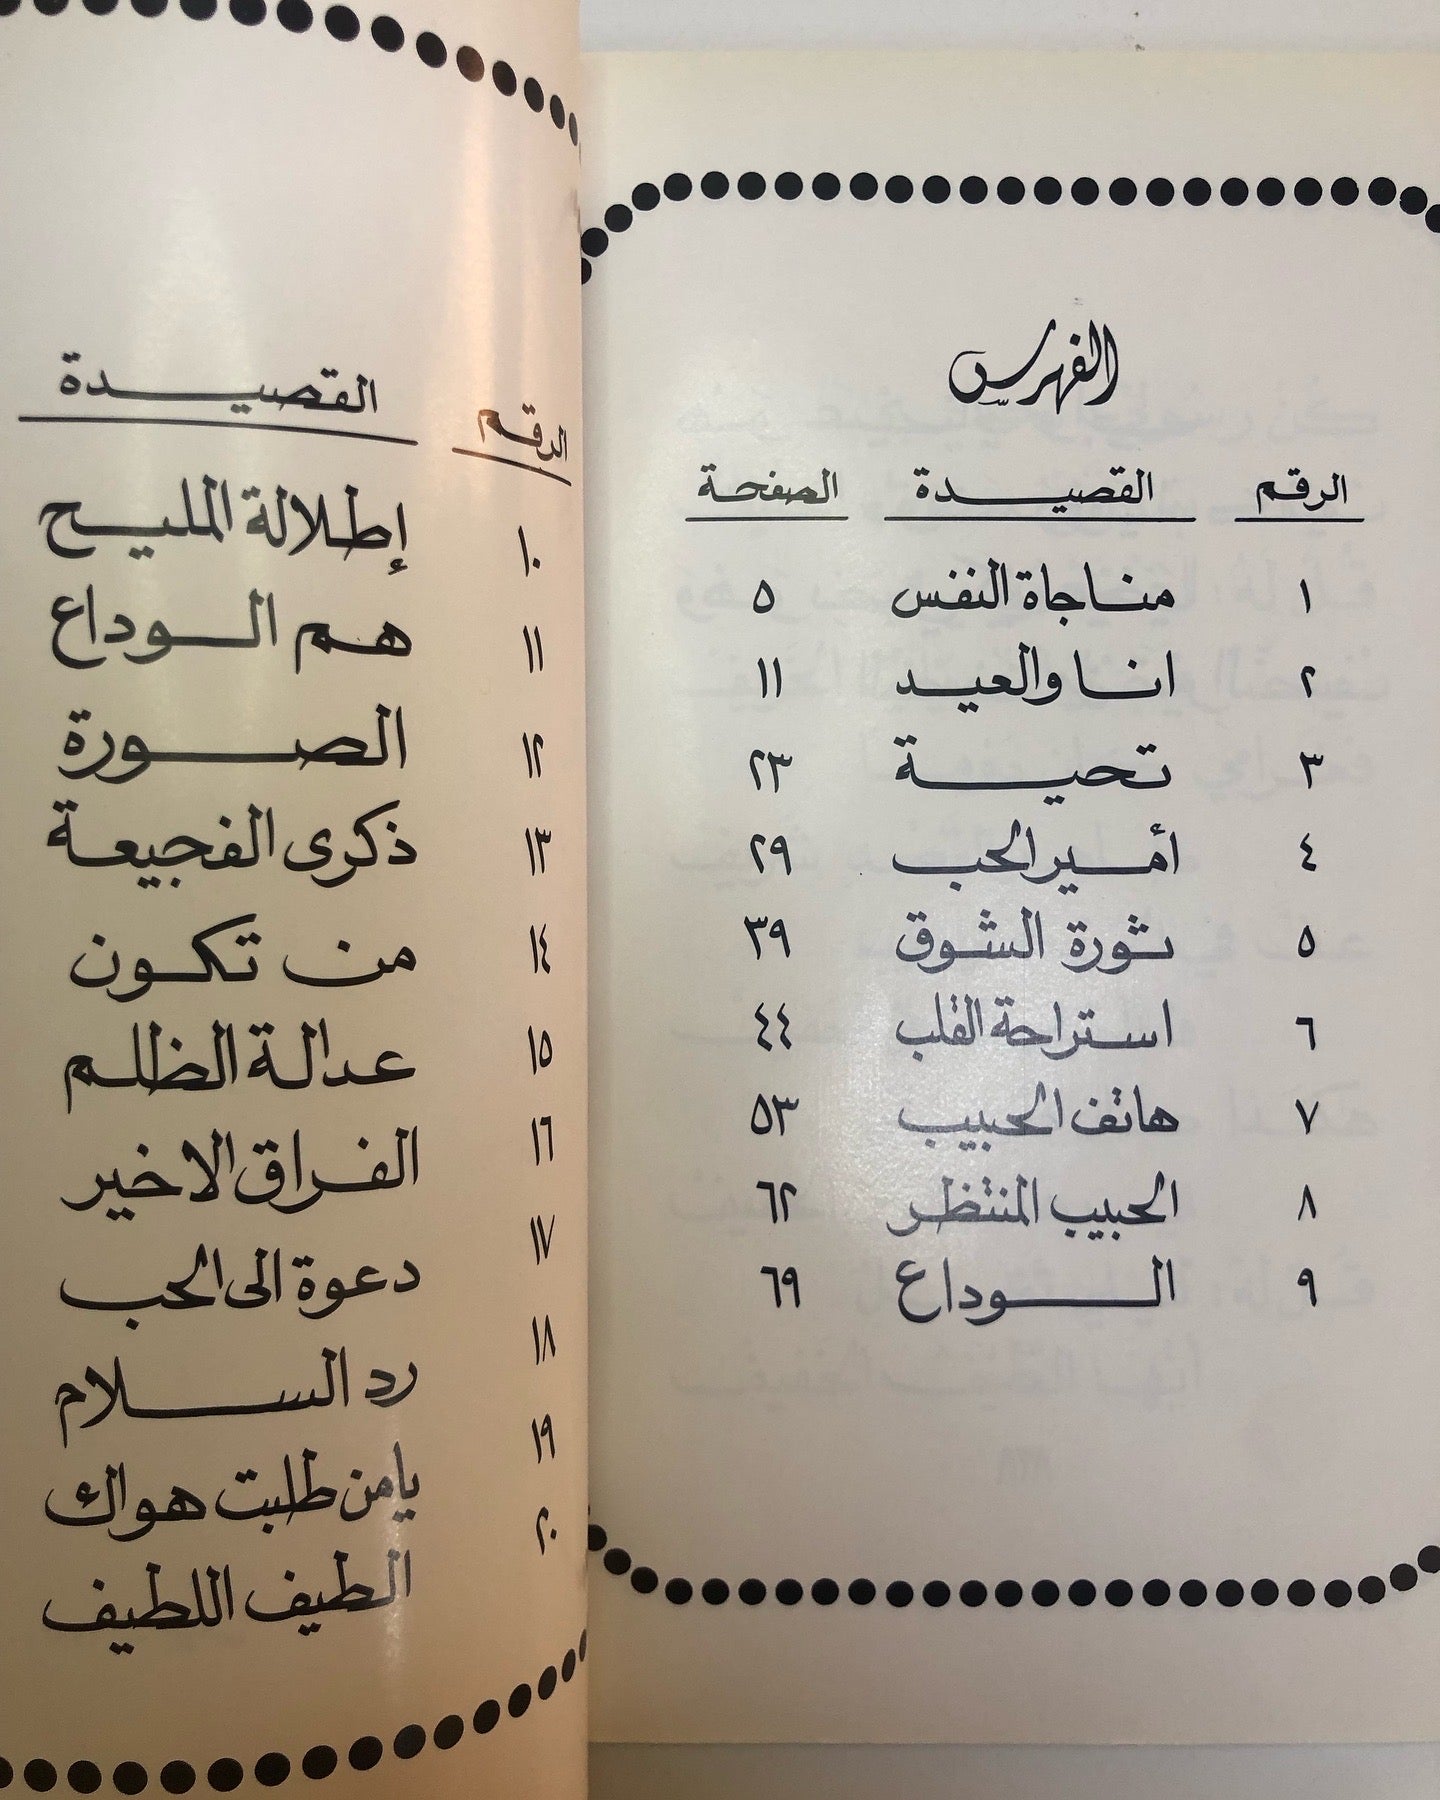 الفهرس
الرقم القصيدة الصفحة
١ مناجاة النفس ٥
٢ انا والعيد ١١
٣ تحية ٢٣
٤ أمير الحب ٢٩
٥ ثورة الشوق ٣٩
٦ استراحة القلب ٤٤
٧ هاتف الحبيب ٥٣
٨ الحبيب المنتظر ٦٢
٩ الوداع ٦٩
الرقم القصيدة
١٠ إطلالة المليح
١١ هم الوداع
١٢ الصورة
١٣ ذكرى الفجيعة
١٤ من تكون
١٥ عدالة الظلم
١٦ الفراق الاخير
١٧ دعوة الى الحب
١٨ رد السلام
١٩ يامن طلبت هواك
٢٠ الطيف اللطيف